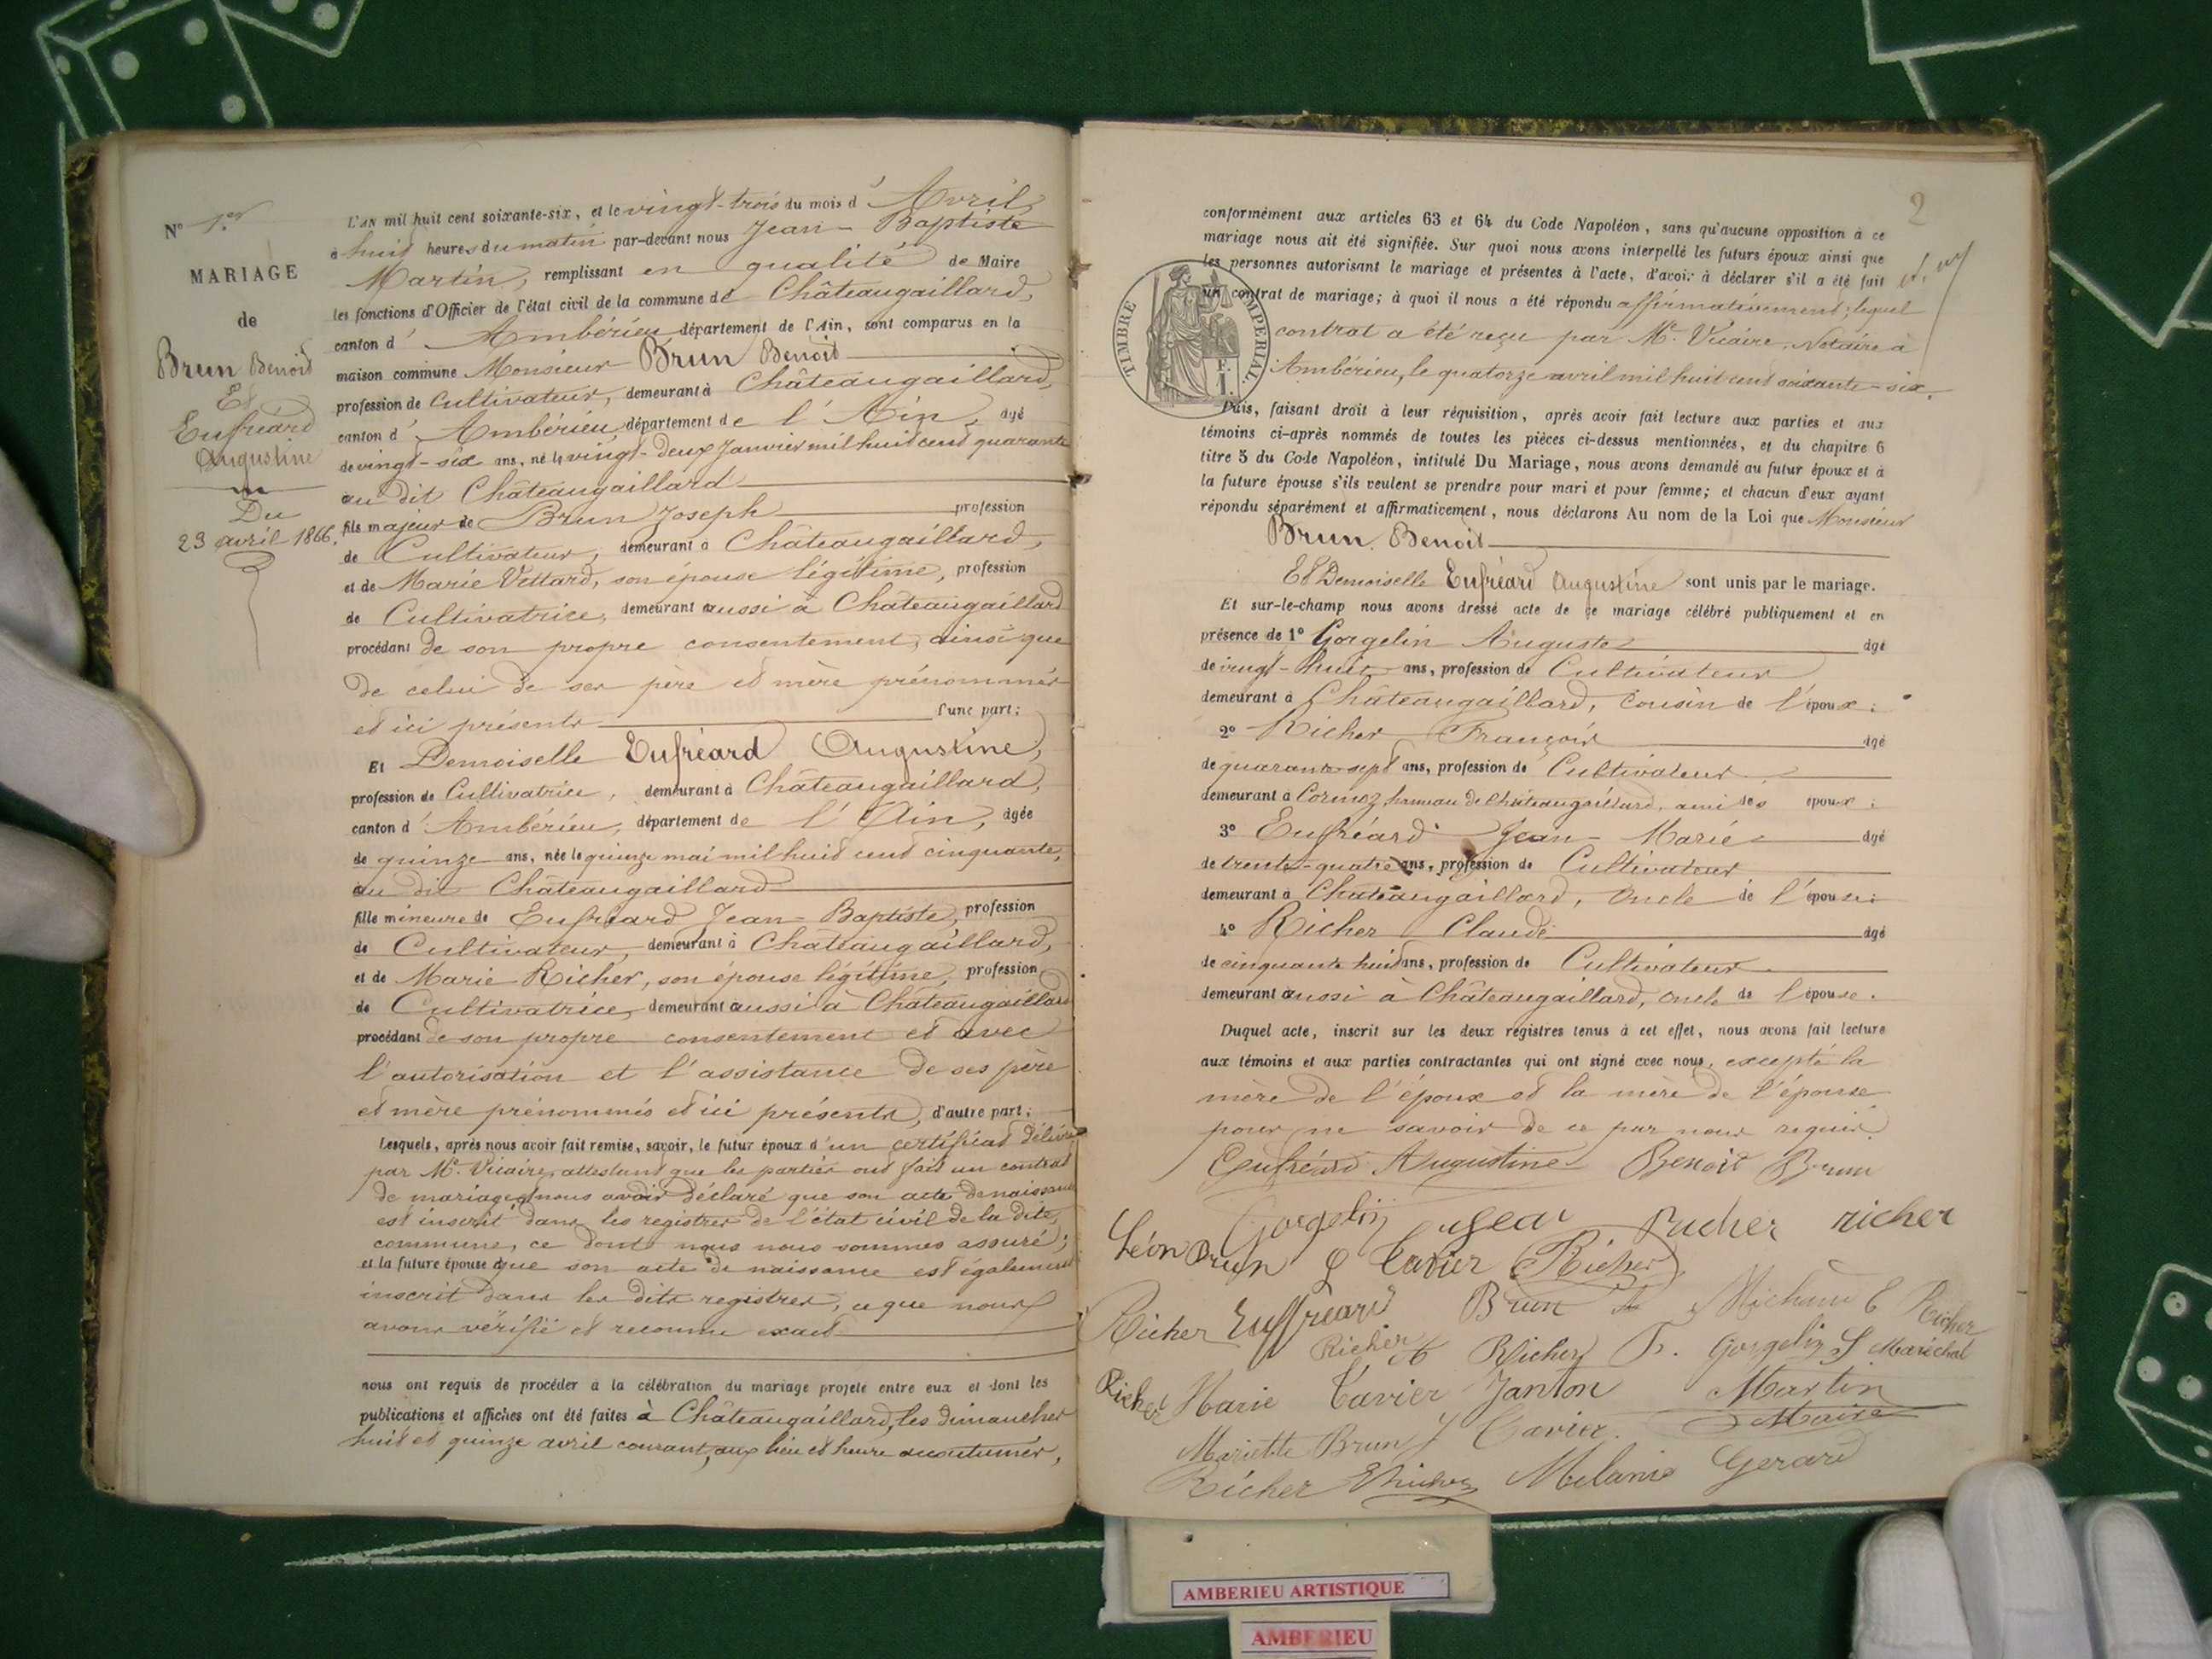 N° 1er
MARIAGE
de
Brun Benoit
Et
Eufréard
Augustine
Du
23 avril 1866.
L'AN mil huit cent soixante-six, et le vingt-trois du mois d'Avril
à huit heures du matin par-devant nous Jean-Baptiste
Martin, remplissant en qualité de Maire
les fonctions d'Officier de l'état civil de la commune de Châteaugaillard,
canton d'Ambérieu département de l'Ain, sont comparus en la
maison commune Monsieur Brun Benoit
profession de Cultivateur, demeurant à Châteaugaillard,
canton d'Ambérieu, département de l'Ain, âgé
de vingt-six ans, né le vingt-deux Janvier mil huit cent quarante
au dit Châteaugaillard
fils majeur de Brun Joseph profession
de Cultivateur, demeurant à Châteaugaillard,
et de Marie Vettard, son épouse légitime, profession
de Cultivatrice, demeurant aussi à Châteaugaillard
procédant de son propre consentement, ainsi que
de celui de ses père et mère prénommés
et ici présents d'une part;
Et Demoiselle Eufréard Augustine,
profession de Cultivatrice, demeurant à Châteaugaillard,
canton d'Ambérieu, département de l'Ain, âgée
de quinze ans, née le quinze mai mil huit cent cinquante,
au dit Châteaugaillard
fille mineure de Eufréard Jean-Baptiste, profession
de Cultivateur, demeurant à Châteaugaillard,
et de Marie Richer, son épouse légitime, profession
de Cultivatrice, demeurant aussi à Châteaugaillard
procédant de son propre consentement et avec
l'autorisation et l'assistance de ses père
et mère prénommés et ici présents, d'autre part;
Lesquels, après nous avoir fait remise, savoir, le futur époux d'un certificat délivré
par Me. Vicaire, attestant que les parties ont fait un contrat
de mariage, nous avoir déclaré que son acte de naissance
est inscrit dans les registres de l'état civil de la dite
commune, ce dont nous nous sommes assuré;
et la future épouse que son acte de naissance est également
inscrit dans les dits registres, ce que nous
avons vérifié et reconnu exact
nous ont requis de procéder à la célébration du mariage projeté entre eux et dont les
publications et affiches ont été faites à Châteaugaillard, les dimanches
huit et quinze avril courant, aux lieu et heure accoutumés,
2
conformément aux articles 63 et 64 du Code Napoléon, sans qu'aucune opposition à ce
mariage nous ait été signifiée. Sur quoi nous avons interpellé les futurs époux ainsi que
les personnes autorisant le mariage et présentes à l'acte, d'avoir à déclarer s'il a été fait
un contrat de mariage; à quoi il nous a été répondu affirmativement; lequel
contrat a été reçu par Me. Vicaire, Notaire à
Ambérieu, le quatorze avril mil huit cent soixante-six.
TIMBRE IMPERIAL.
Puis, faisant droit à leur réquisition, après avoir fait lecture aux parties et aux
témoins ci-après nommés de toutes les pièces ci-dessus mentionnées, et du chapitre 6
titre 5 du Code Napoléon, intitulé Du Mariage, nous avons demandé au futur époux et à
la future épouse s'ils veulent se prendre pour mari et pour femme; et chacun d'eux ayant
répondu séparément et affirmativement, nous déclarons Au nom de la Loi que Monsieur
Brun Benoit
Et Demoiselle Eufréard Augustine sont unis par le mariage.
Et sur-le-champ nous avons dressé acte de ce mariage célébré publiquement et en
présence de 1° Gorgelin Auguste âgé
de vingt-huit ans, profession de Cultivateur
demeurant à Châteaugaillard, cousin de l'époux;
2° Richer François âgé
de quarante-sept ans, profession de Cultivateur
demeurant à Cormoz hameau de Châteaugaillard, ami des époux;
3° Eufréard Jean-Marie âgé
de trente-quatre ans, profession de Cultivateur
demeurant à Châteaugaillard, oncle de l'épouse;
4° Richer Claude âgé
de cinquante huit ans, profession de Cultivateur
demeurant aussi à Châteaugaillard, oncle de l'épouse.
Duquel acte, inscrit sur les deux registres tenus à cet effet, nous avons fait lecture
aux témoins et aux parties contractantes qui ont signé avec nous, excepté la
mère de l'époux et la mère de l'épouse
pour ne savoir de ce par nous requis.
Eufréard Augustine Benoit Brun
Gorgelin Richer richer
Léon Brun Tavier Richer
Richer Euffréard Brun Michaud C Richer
Richer Richer Gorgelin S Maréchal
Richer Marie Tavier Janton Martin
Maire
Mariette Brun J Tavier
Richer Melanie Gerard
AMBERIEU ARTISTIQUE
AMBERIEU